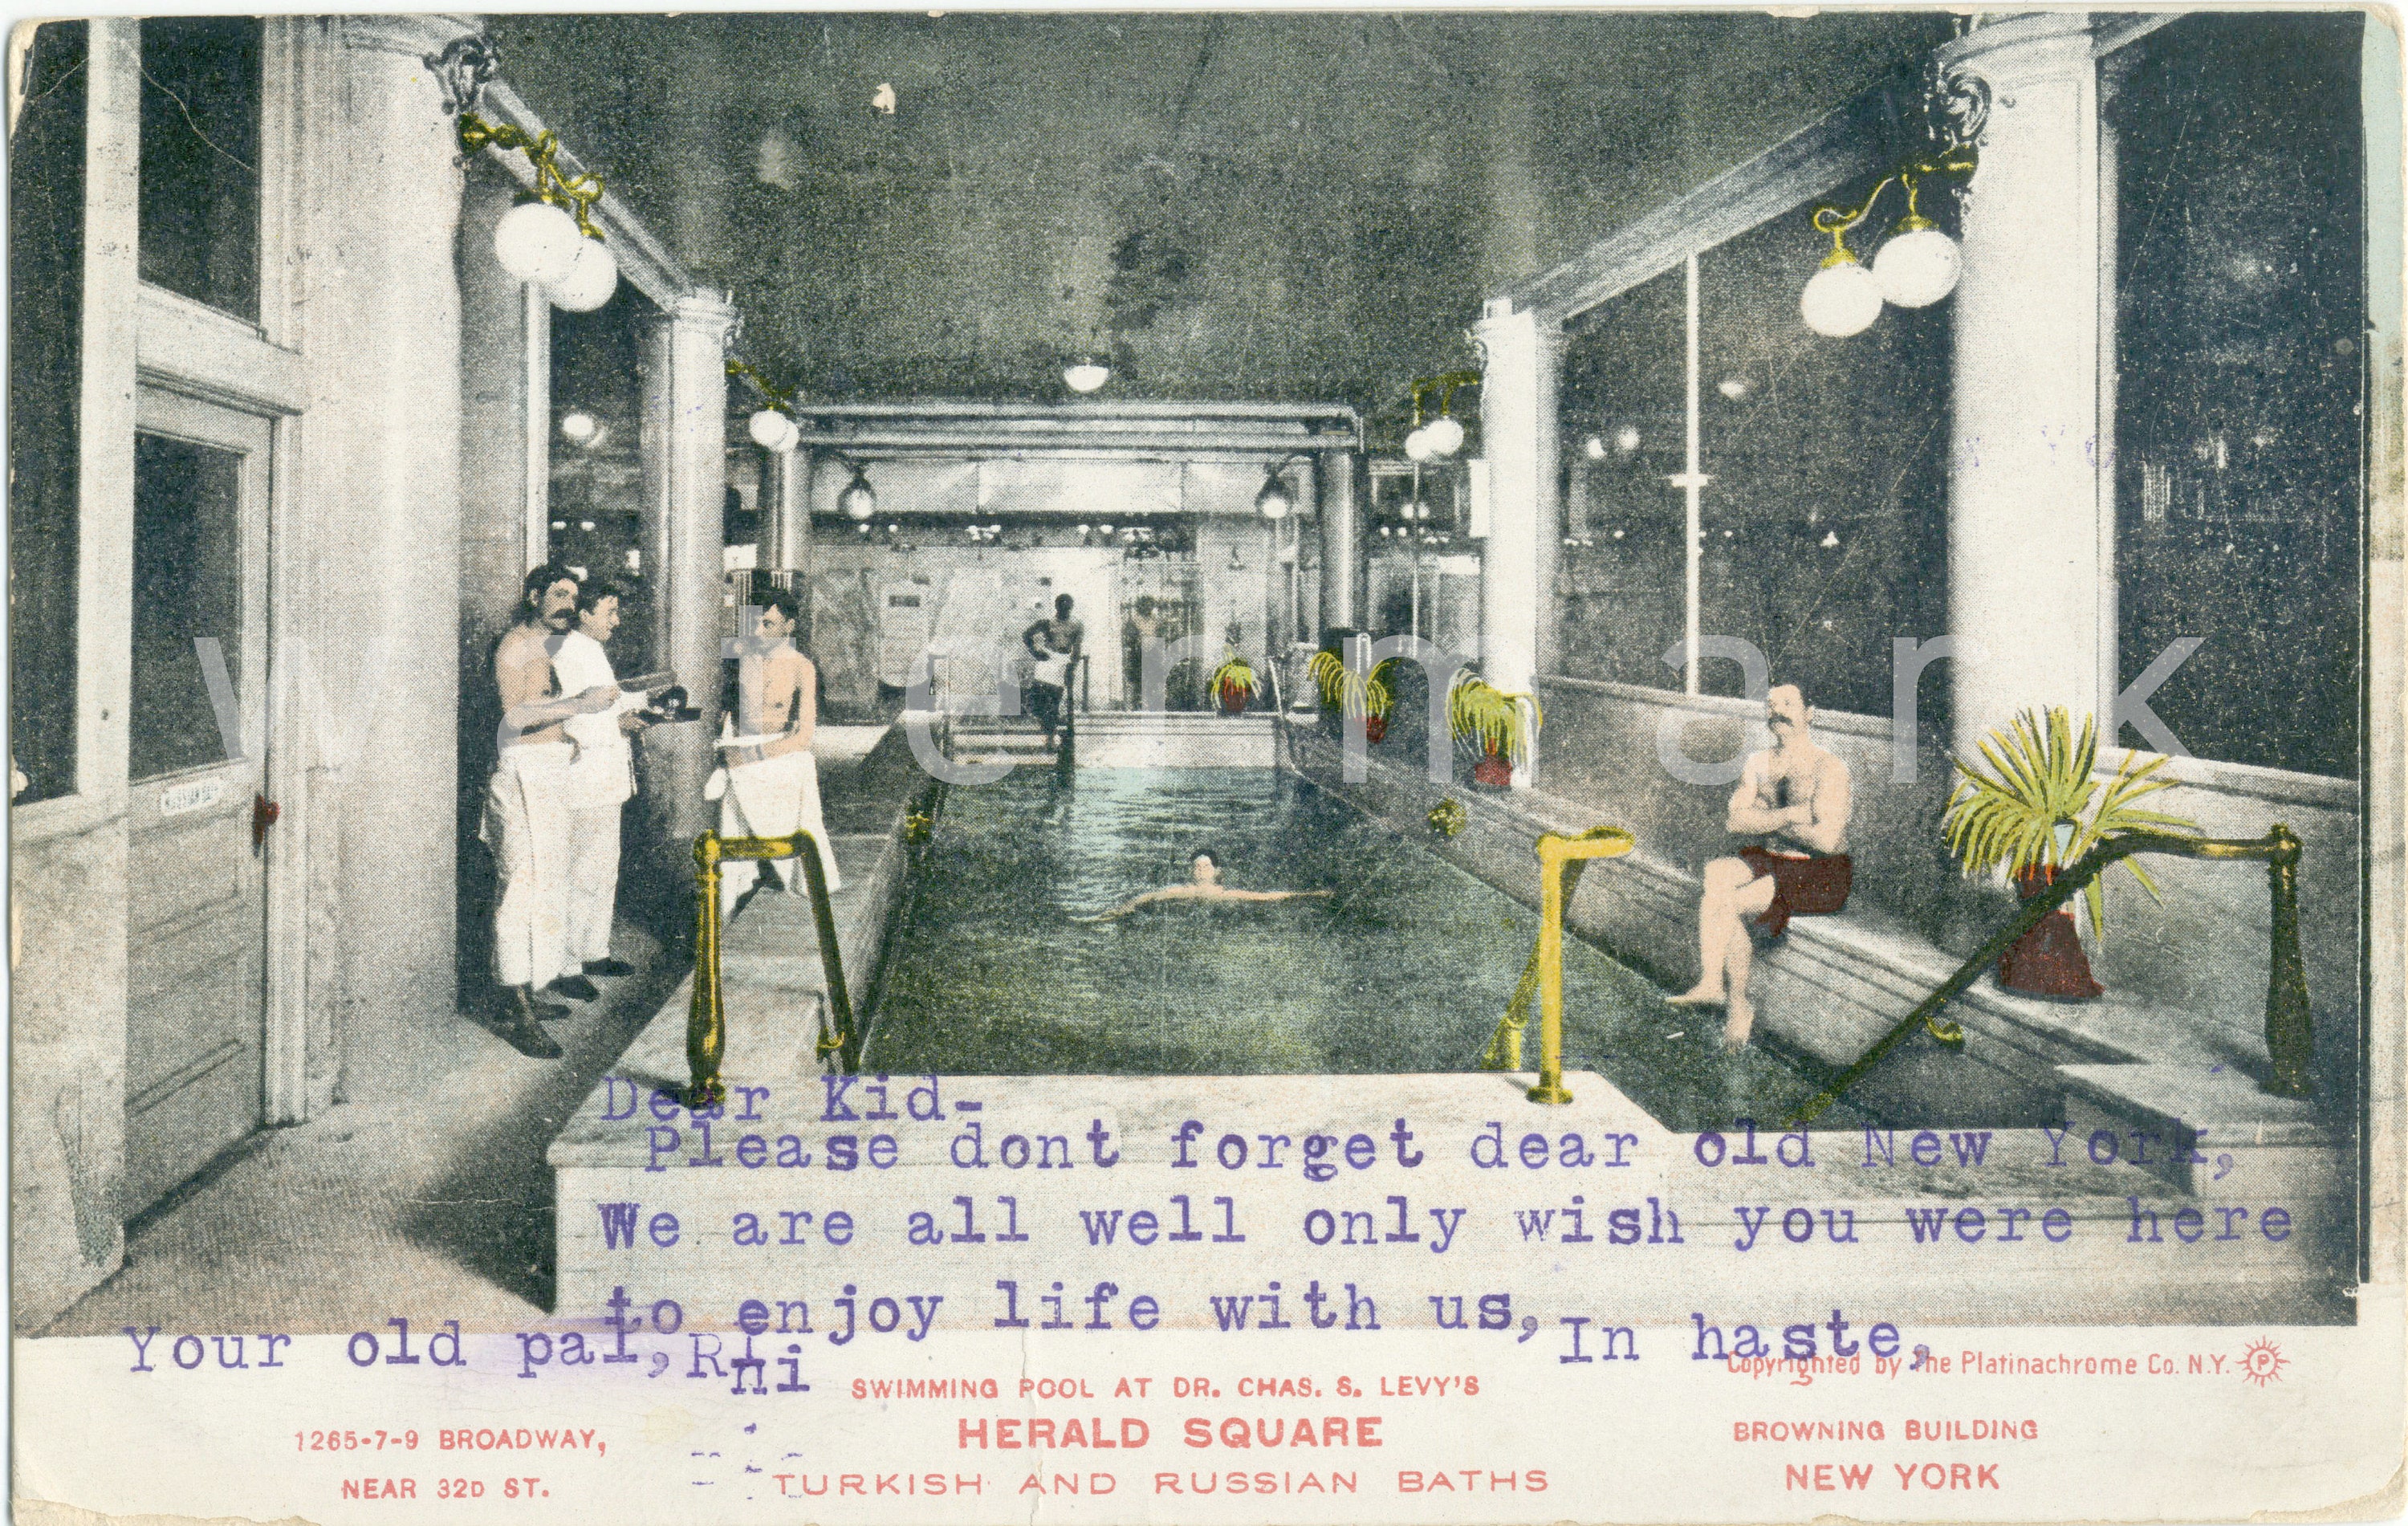 watermark
Dear Kid-
Please dont forget dear old New York,
We are all well only wish you were here
to enjoy life with us, In haste,
Your old pal,
Copyrighted by The Platinachrome Co. N.Y. P
SWIMMING POOL AT DR. CHAS. S. LEVY'S
HERALD SQUARE
TURKISH AND RUSSIAN BATHS
1265-7-9 BROADWAY,
NEAR 32D ST.
BROWNING BUILDING
NEW YORK